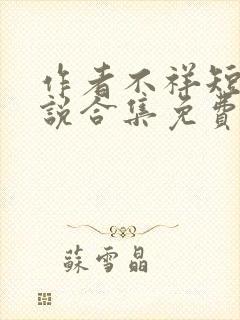 作者不祥短
說合集免費
蘇雪晶